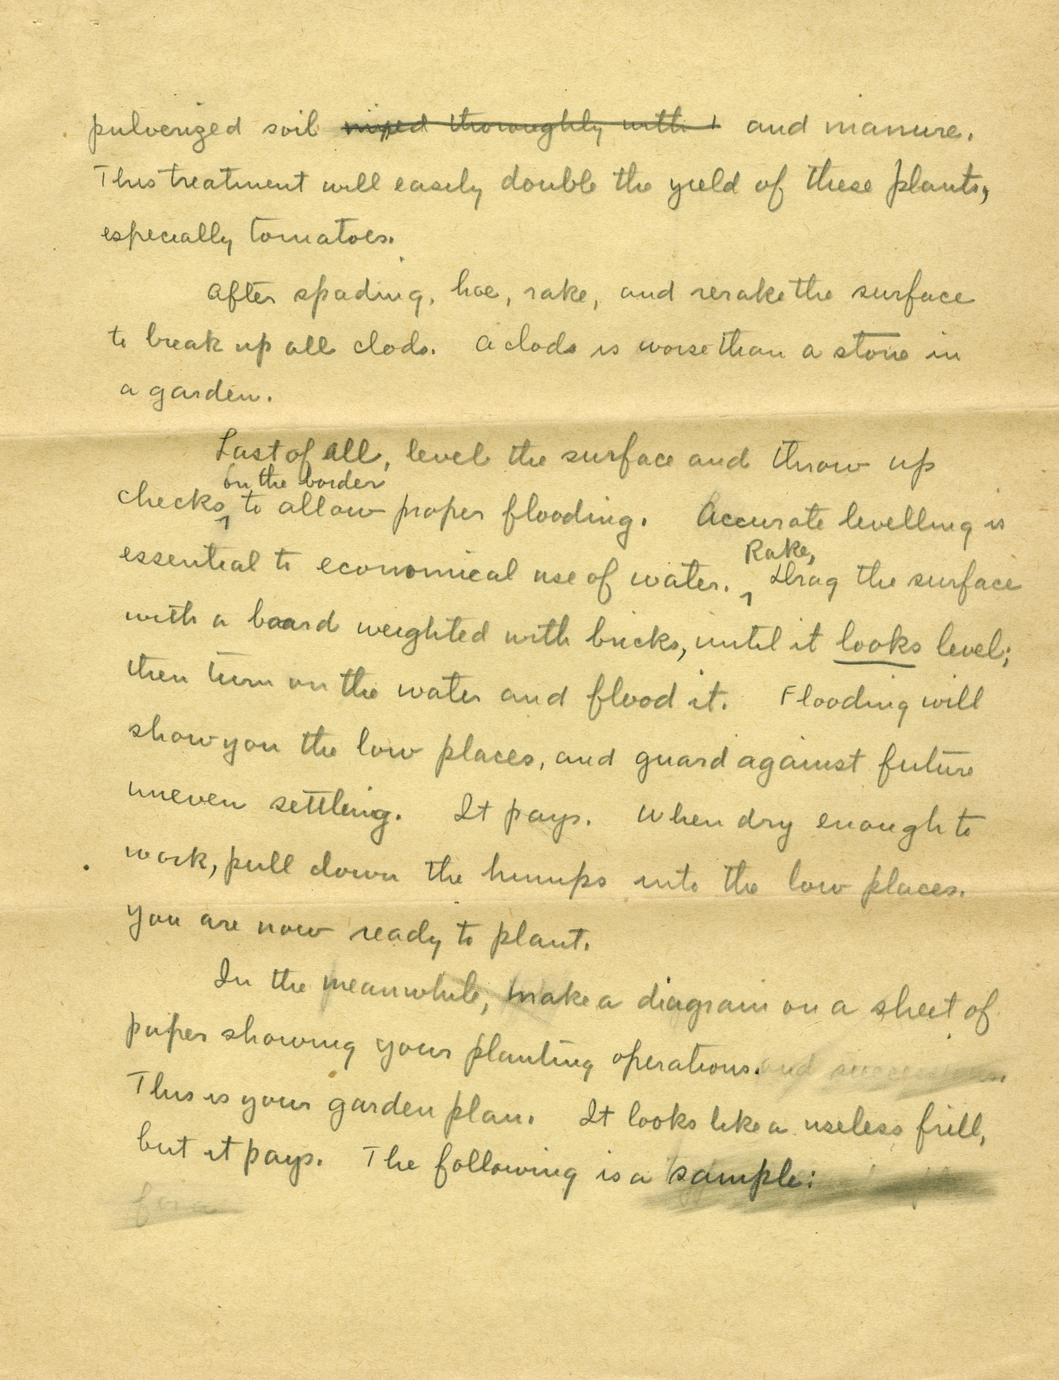 pulverized soil mixed thoroughly with and manure.
This treatment will easily double the yield of these plants,
especially tomatoes.
After spading, hoe, rake, and rerake the surface
to break up all clods. A clods is worse than a stone in
a garden.
Last of all, level the surface and throw up
on the border
checks to allow proper flooding. Accurate levelling is
Rake,
essential to economical use of water. Drag the surface
with a board weighted with bricks, until it looks level;
then turn on the water and flood it. Flooding will
show you the low places, and guard against future
uneven settling. It pays. When dry enough to
work, pull down the humps into the low places.
You are now ready to plant.
In the meanwhile, make a diagram on a sheet of
paper showing your planting operations. and successions.
This is your garden plan. It looks like a useless frill,
but it pays. The following is a sample:
for a